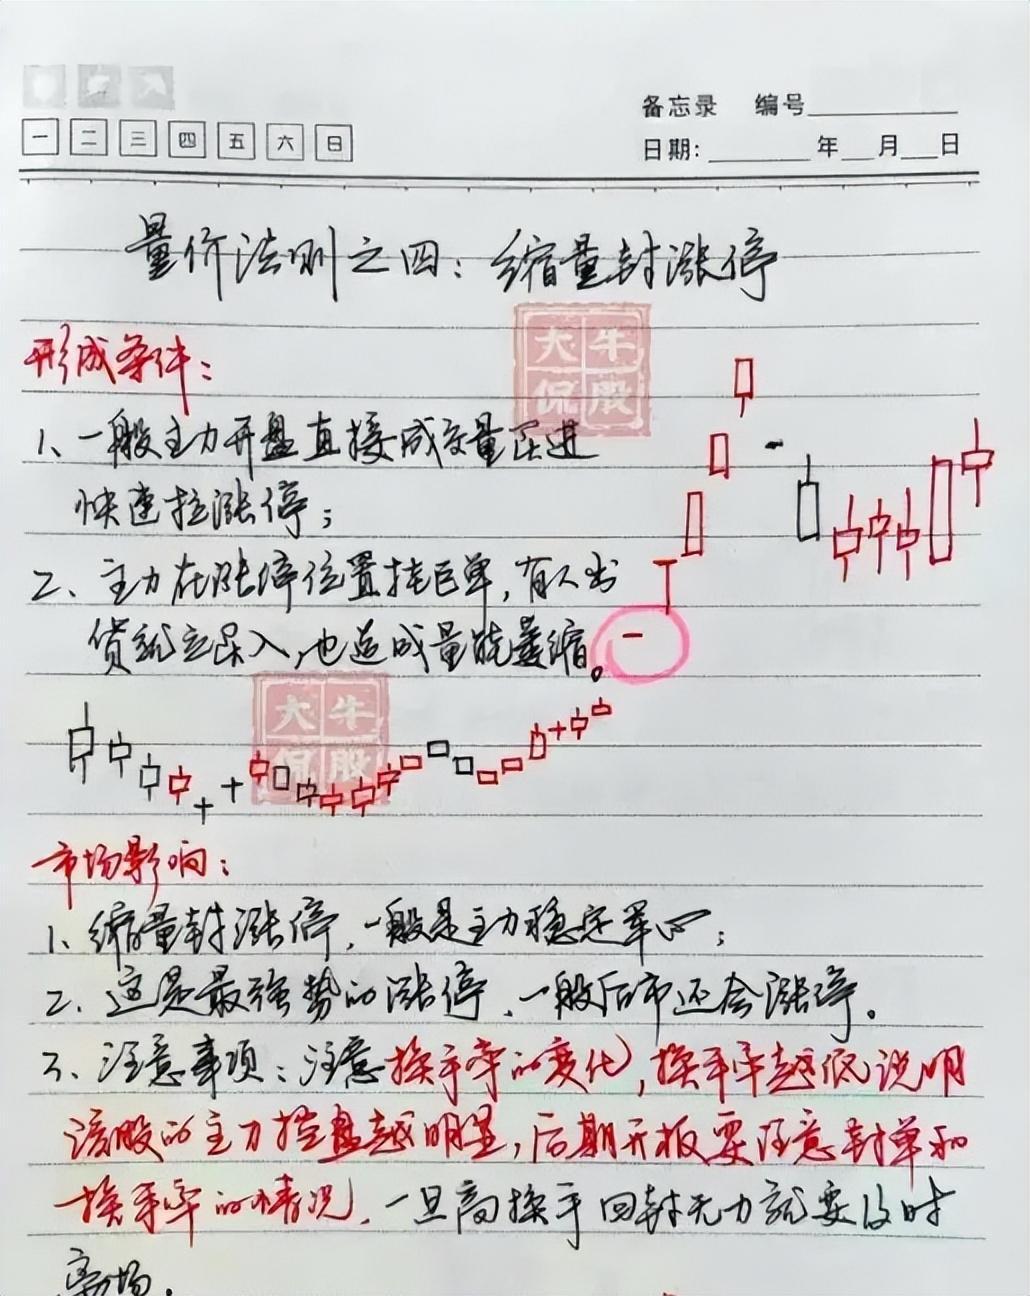 备忘录 编号
一 二 三 四 五 六 日
日期: 年 月 日
量价法则之四：缩量封涨停
大牛
侃股
形成条件：
1、一般主力开盘直接成交量压进
快速拉涨停；
2、主力在涨停位置挂巨单，有人出
货就立足入，也造成量能萎缩。
大牛
侃股
市场影响：
1、缩量封涨停，一般是主力稳定军心；
2、这是最强势的涨停，一般后市还会涨停。
3、注意事项：注意换手率的变化，换手率越低说明
该股的主力控盘越明显，后期开板要注意封单和
换手率的情况，一旦高换手回封无力就要及时
离场。